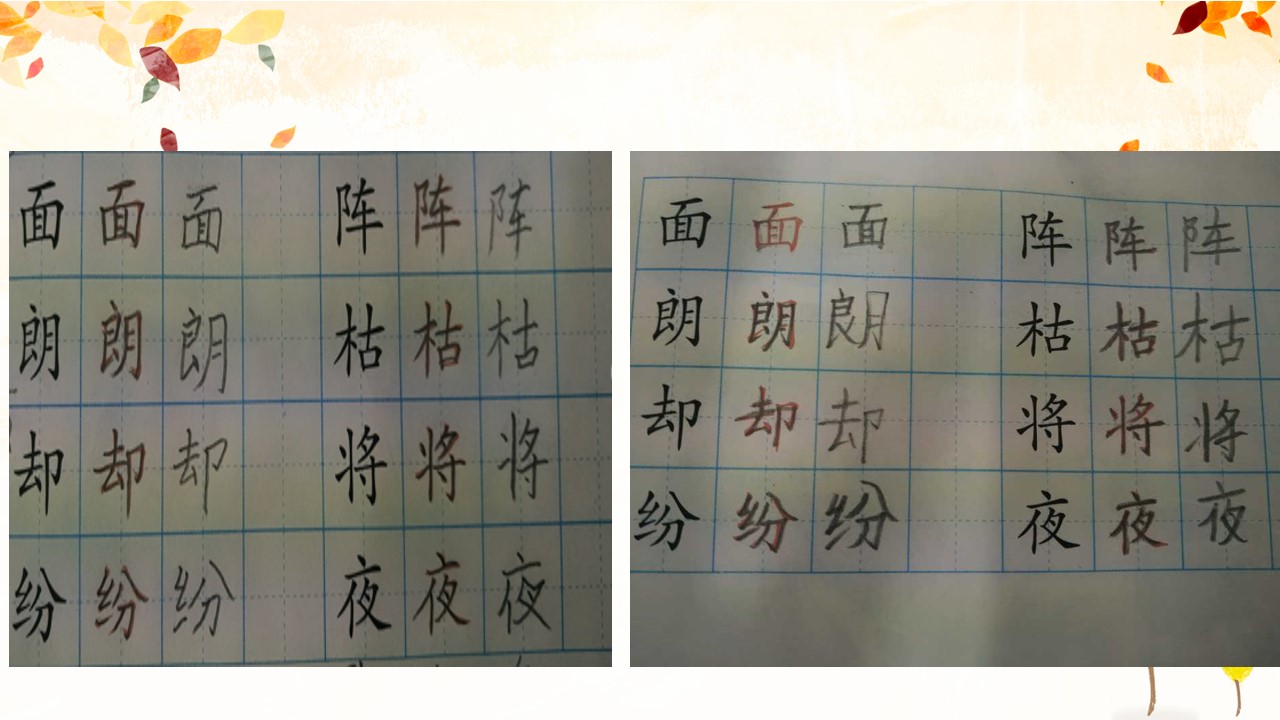 面 面 面 阵 阵 阵
朗 朗 朗 枯 枯 枯
却 却 却 将 将 将
纷 纷 纷 夜 夜 夜
面 面 面 阵 阵 阵
朗 朗 朗 枯 枯 枯
却 却 却 将 将 将
纷 纷 纷 夜 夜 夜